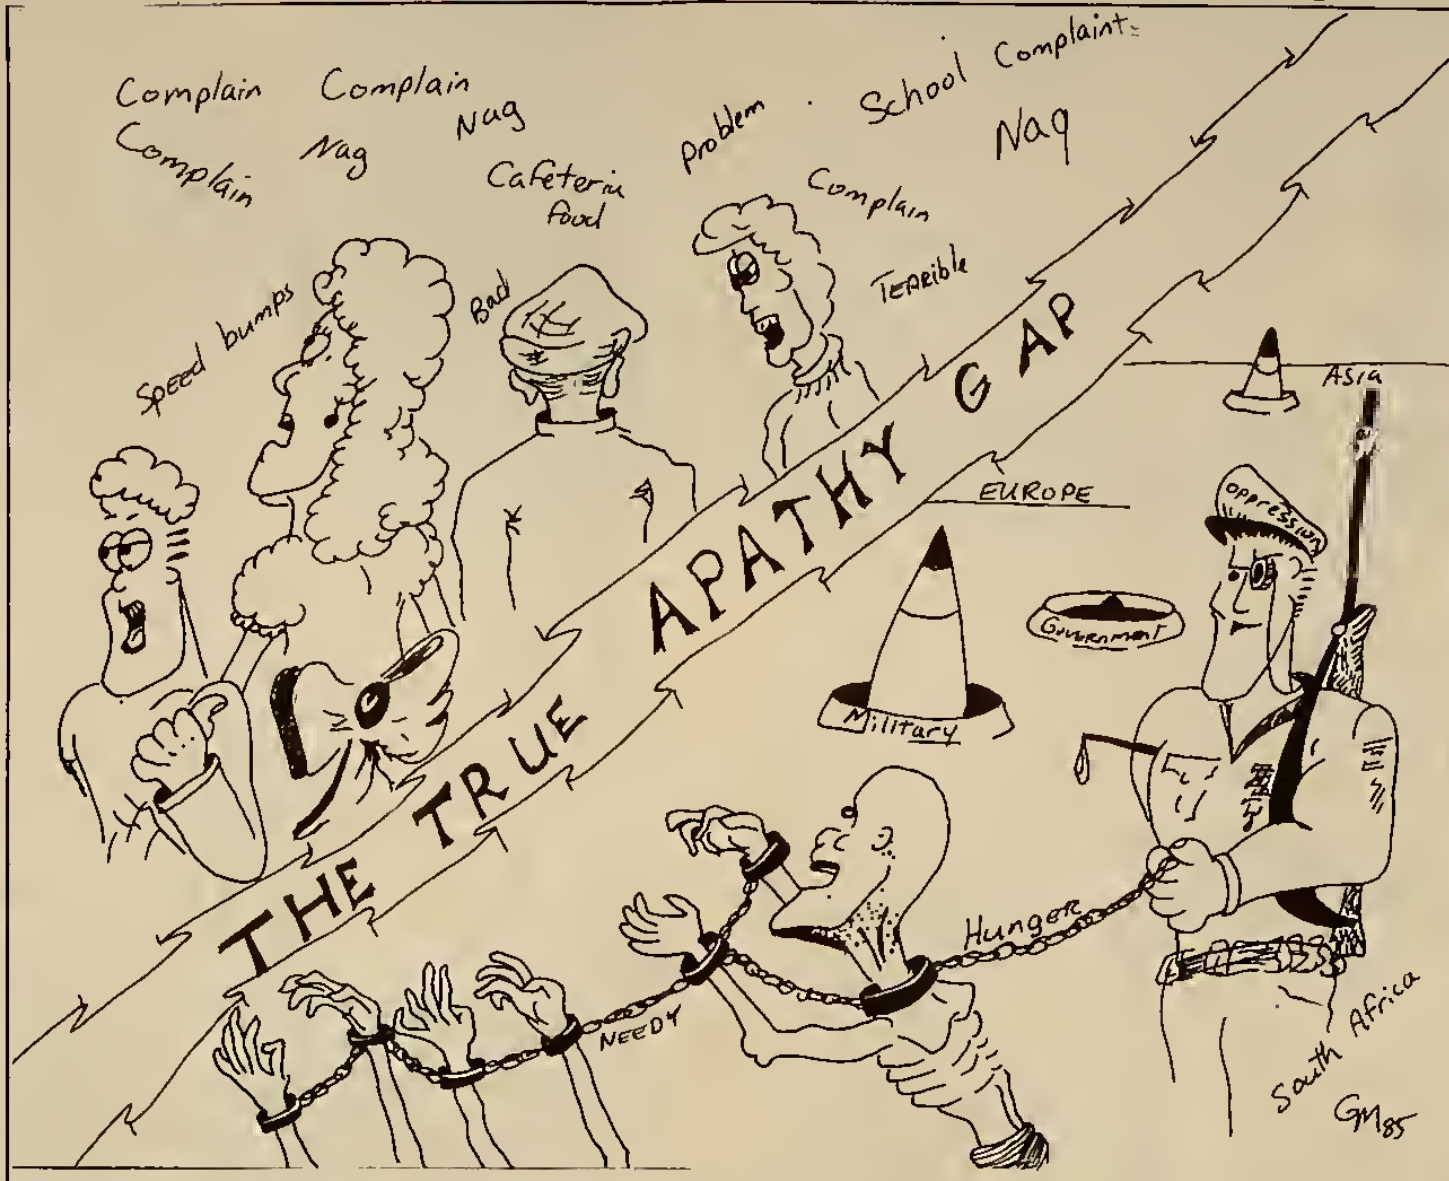 Complain Complain
Complain Nag Nag
Cafeteria
food
Problem
School Complaint
Nag
Complain
Terrible
Speed bumps
Bad
THE TRUE APATHY GAP
Asia
EUROPE
Oppression
Government
Military
Hunger
NEEDY
South Africa
GM85